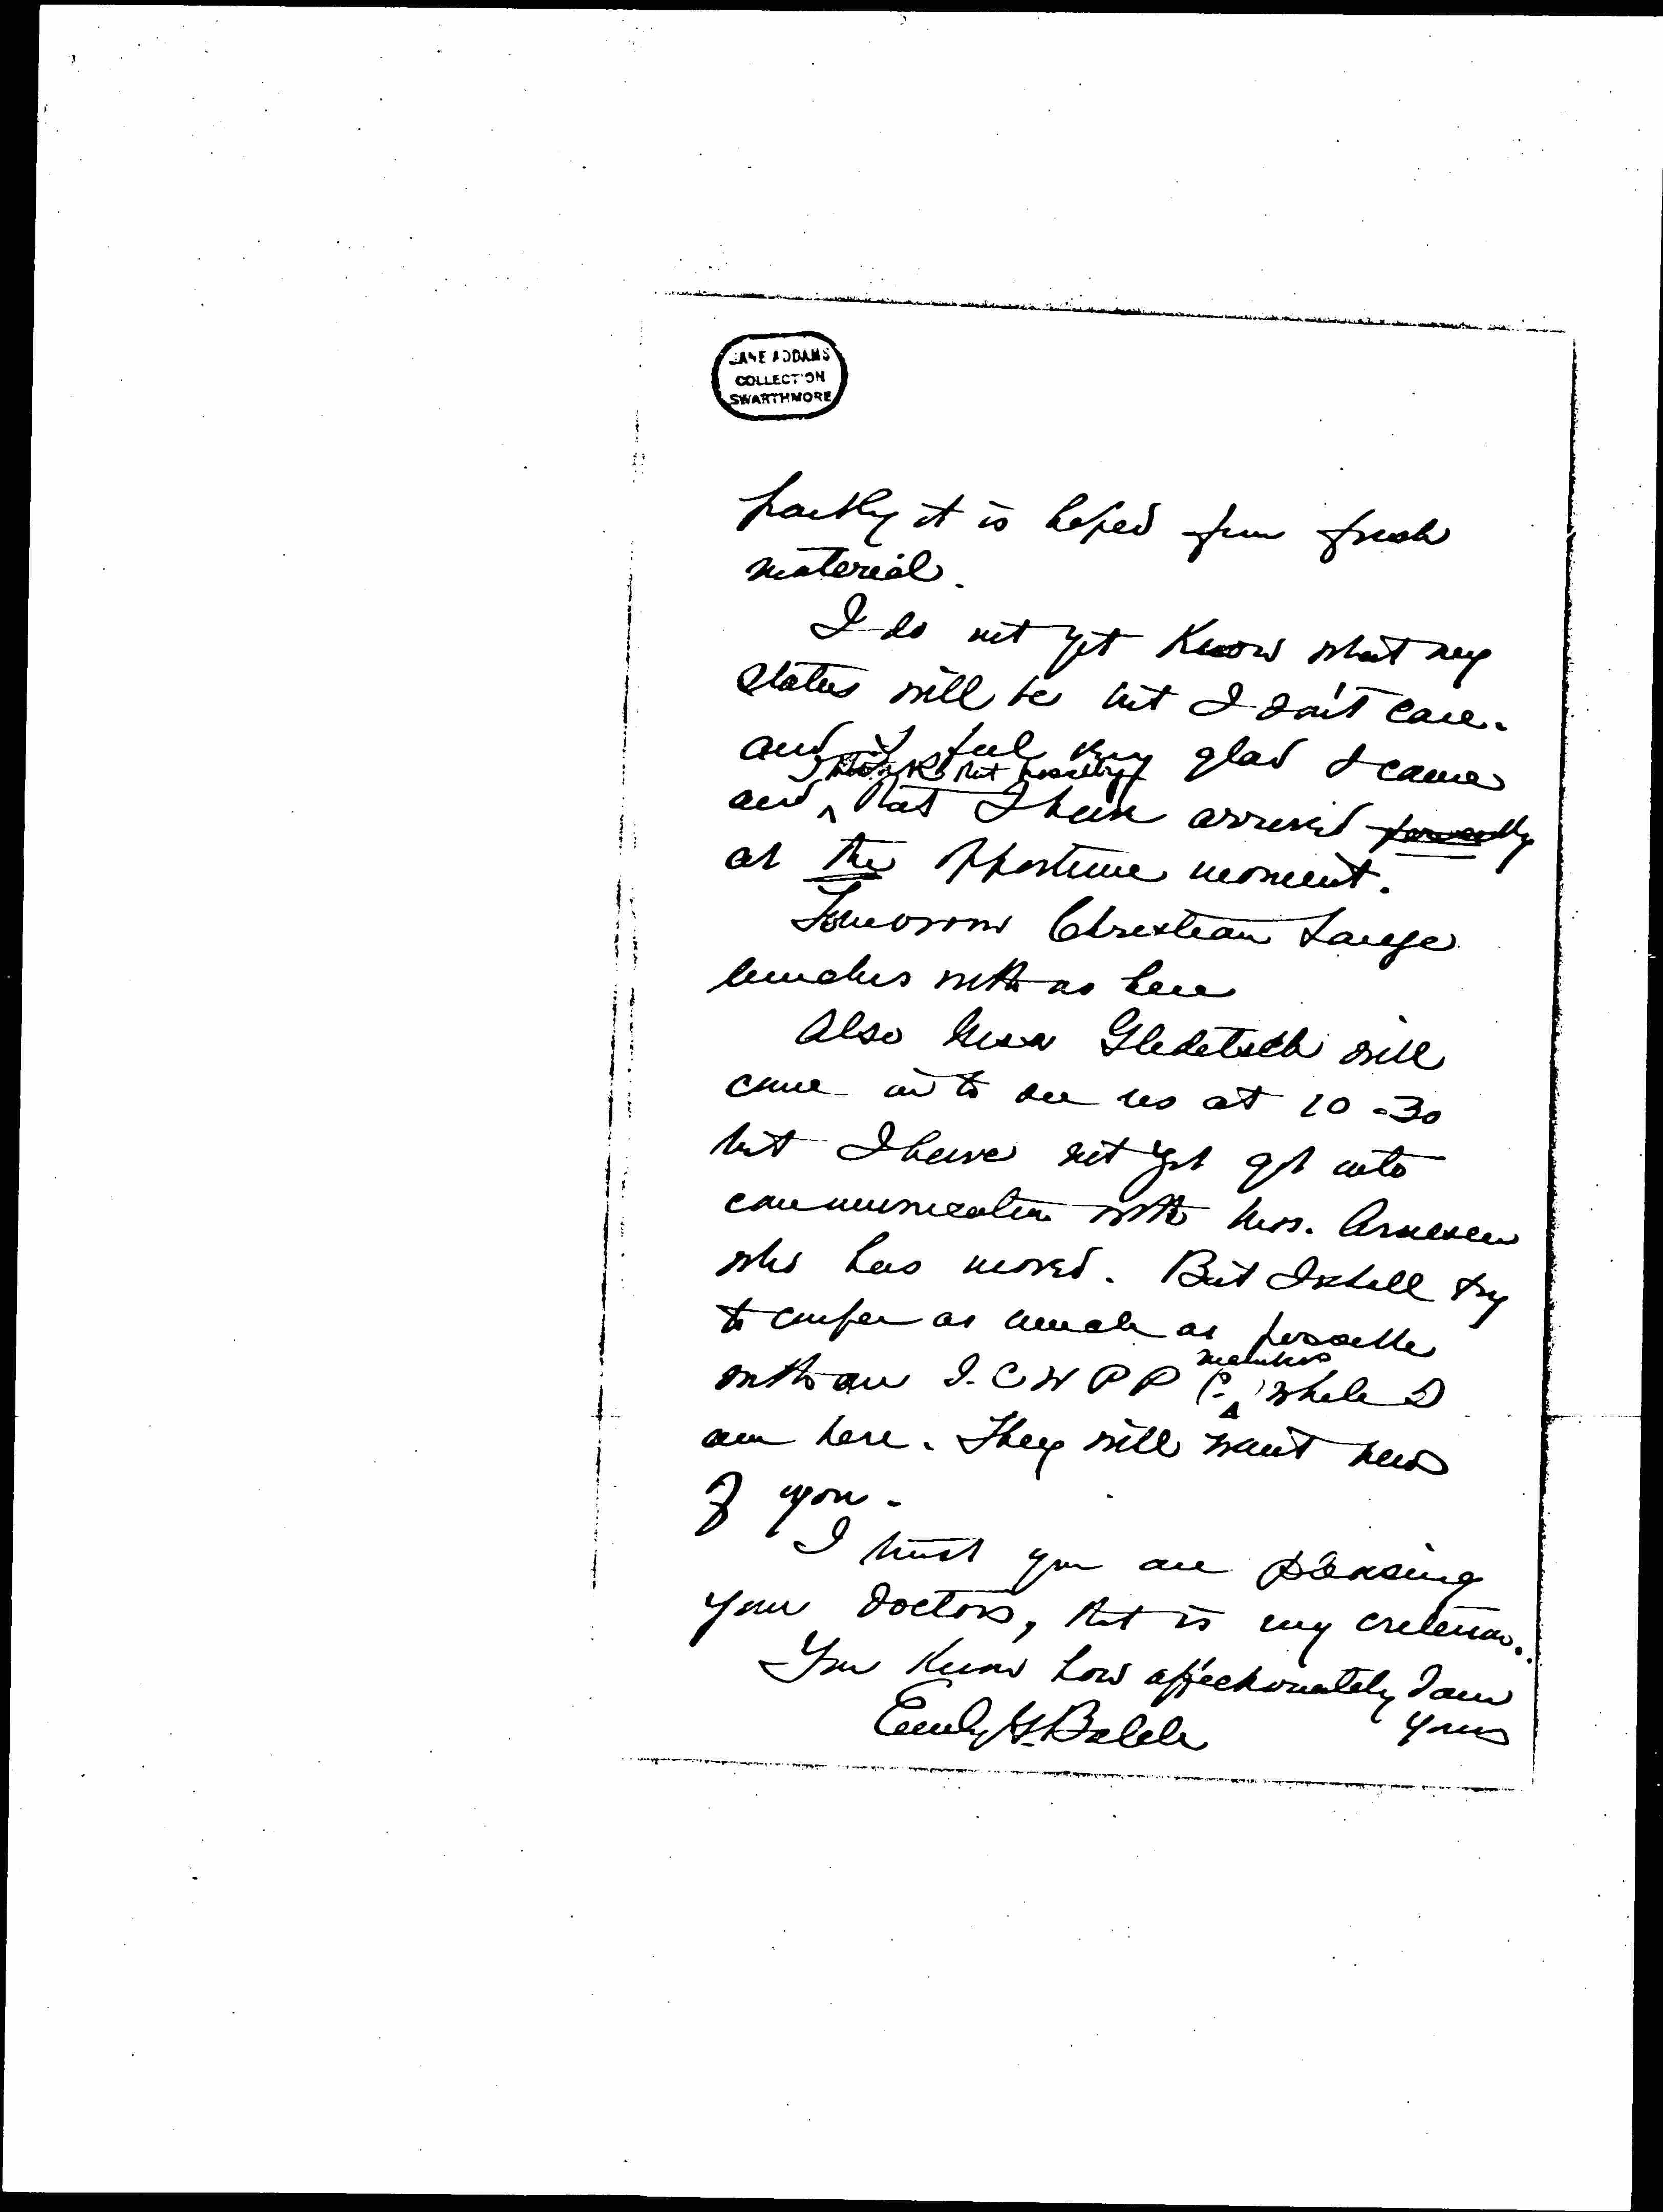 JANE ADDAMS
COLLECTION
SWARTHMORE
partly it is hoped from fresh
material.
I do not yet know what my
status will be but I don't care.
and I feel very glad I came
I think that possibly
and that I have arrived
at the opportune moment.
Tomorrow Christian Lange
lunches with us here
Also Miss Gledetsch will
come in to see us at 10-30
but I have not yet got into
communication with Mrs. Arnesen
who has moved. But I shall try
to confer as much as possible
members
with our I.C W P P (?) while I
am here. They will want news
of you.
I trust you are pleasing
your doctors, that is my criterion.
You know how affectionately I am
yours
Emily G. Balch